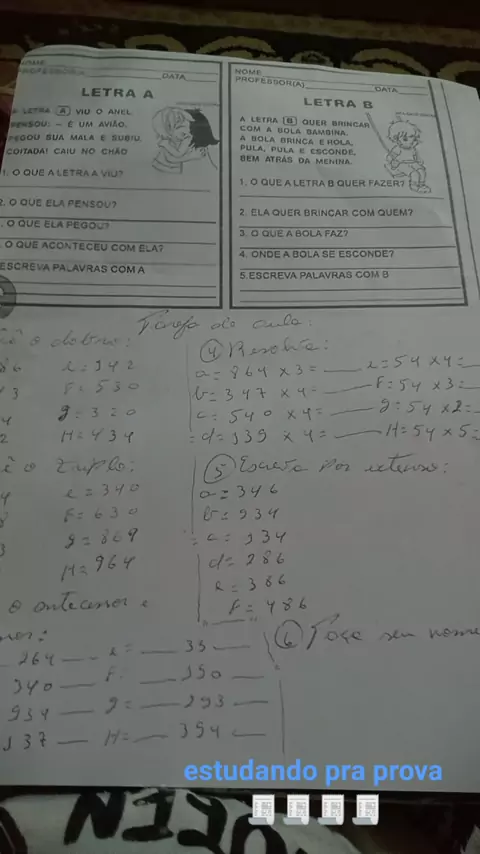 NOME
PROFESSOR(A) DATA
LETRA A
A LETRA A VIU O ANEL
PENSOU: – É UM AVIÃO.
PEGOU SUA MALA E SUBIU.
COITADA! CAIU NO CHÃO
1. O QUE A LETRA A VIU?
2. O QUE ELA PENSOU?
. O QUE ELA PEGOU?
. O QUE ACONTECEU COM ELA?
ESCREVA PALAVRAS COM A
NOME
PROFESSOR(A) DATA
LETRA B
A LETRA B QUER BRINCAR
COM A BOLA BAMBINA.
A BOLA BRINCA E ROLA,
PULA, PULA E ESCONDE,
BEM ATRÁS DA MENINA.
1. O QUE A LETRA B QUER FAZER?
2. ELA QUER BRINCAR COM QUEM?
3. O QUE A BOLA FAZ?
4. ONDE A BOLA SE ESCONDE?
5. ESCREVA PALAVRAS COM B
Tarefa de aula:
o dobro:
e= 942
F= 530
g= 320
H= 434
o triplo:
e= 340
F= 630
g= 869
H= 964
o antecessor e
264 e= 35
340 F= 150
934 g= 293
137 H= 394
4 Resolva:
a= 864 x 3= e= 54 x 4=
b= 347 x 4= F= 54 x 3=
c= 540 x 4= g= 54 x 2=
d= 139 x 4= H= 54 x 5=
5 Escreva por extenso:
a= 346
b= 934
c= 134
d= 286
e= 386
F= 486
6 Faça seu nome
estudando pra prova